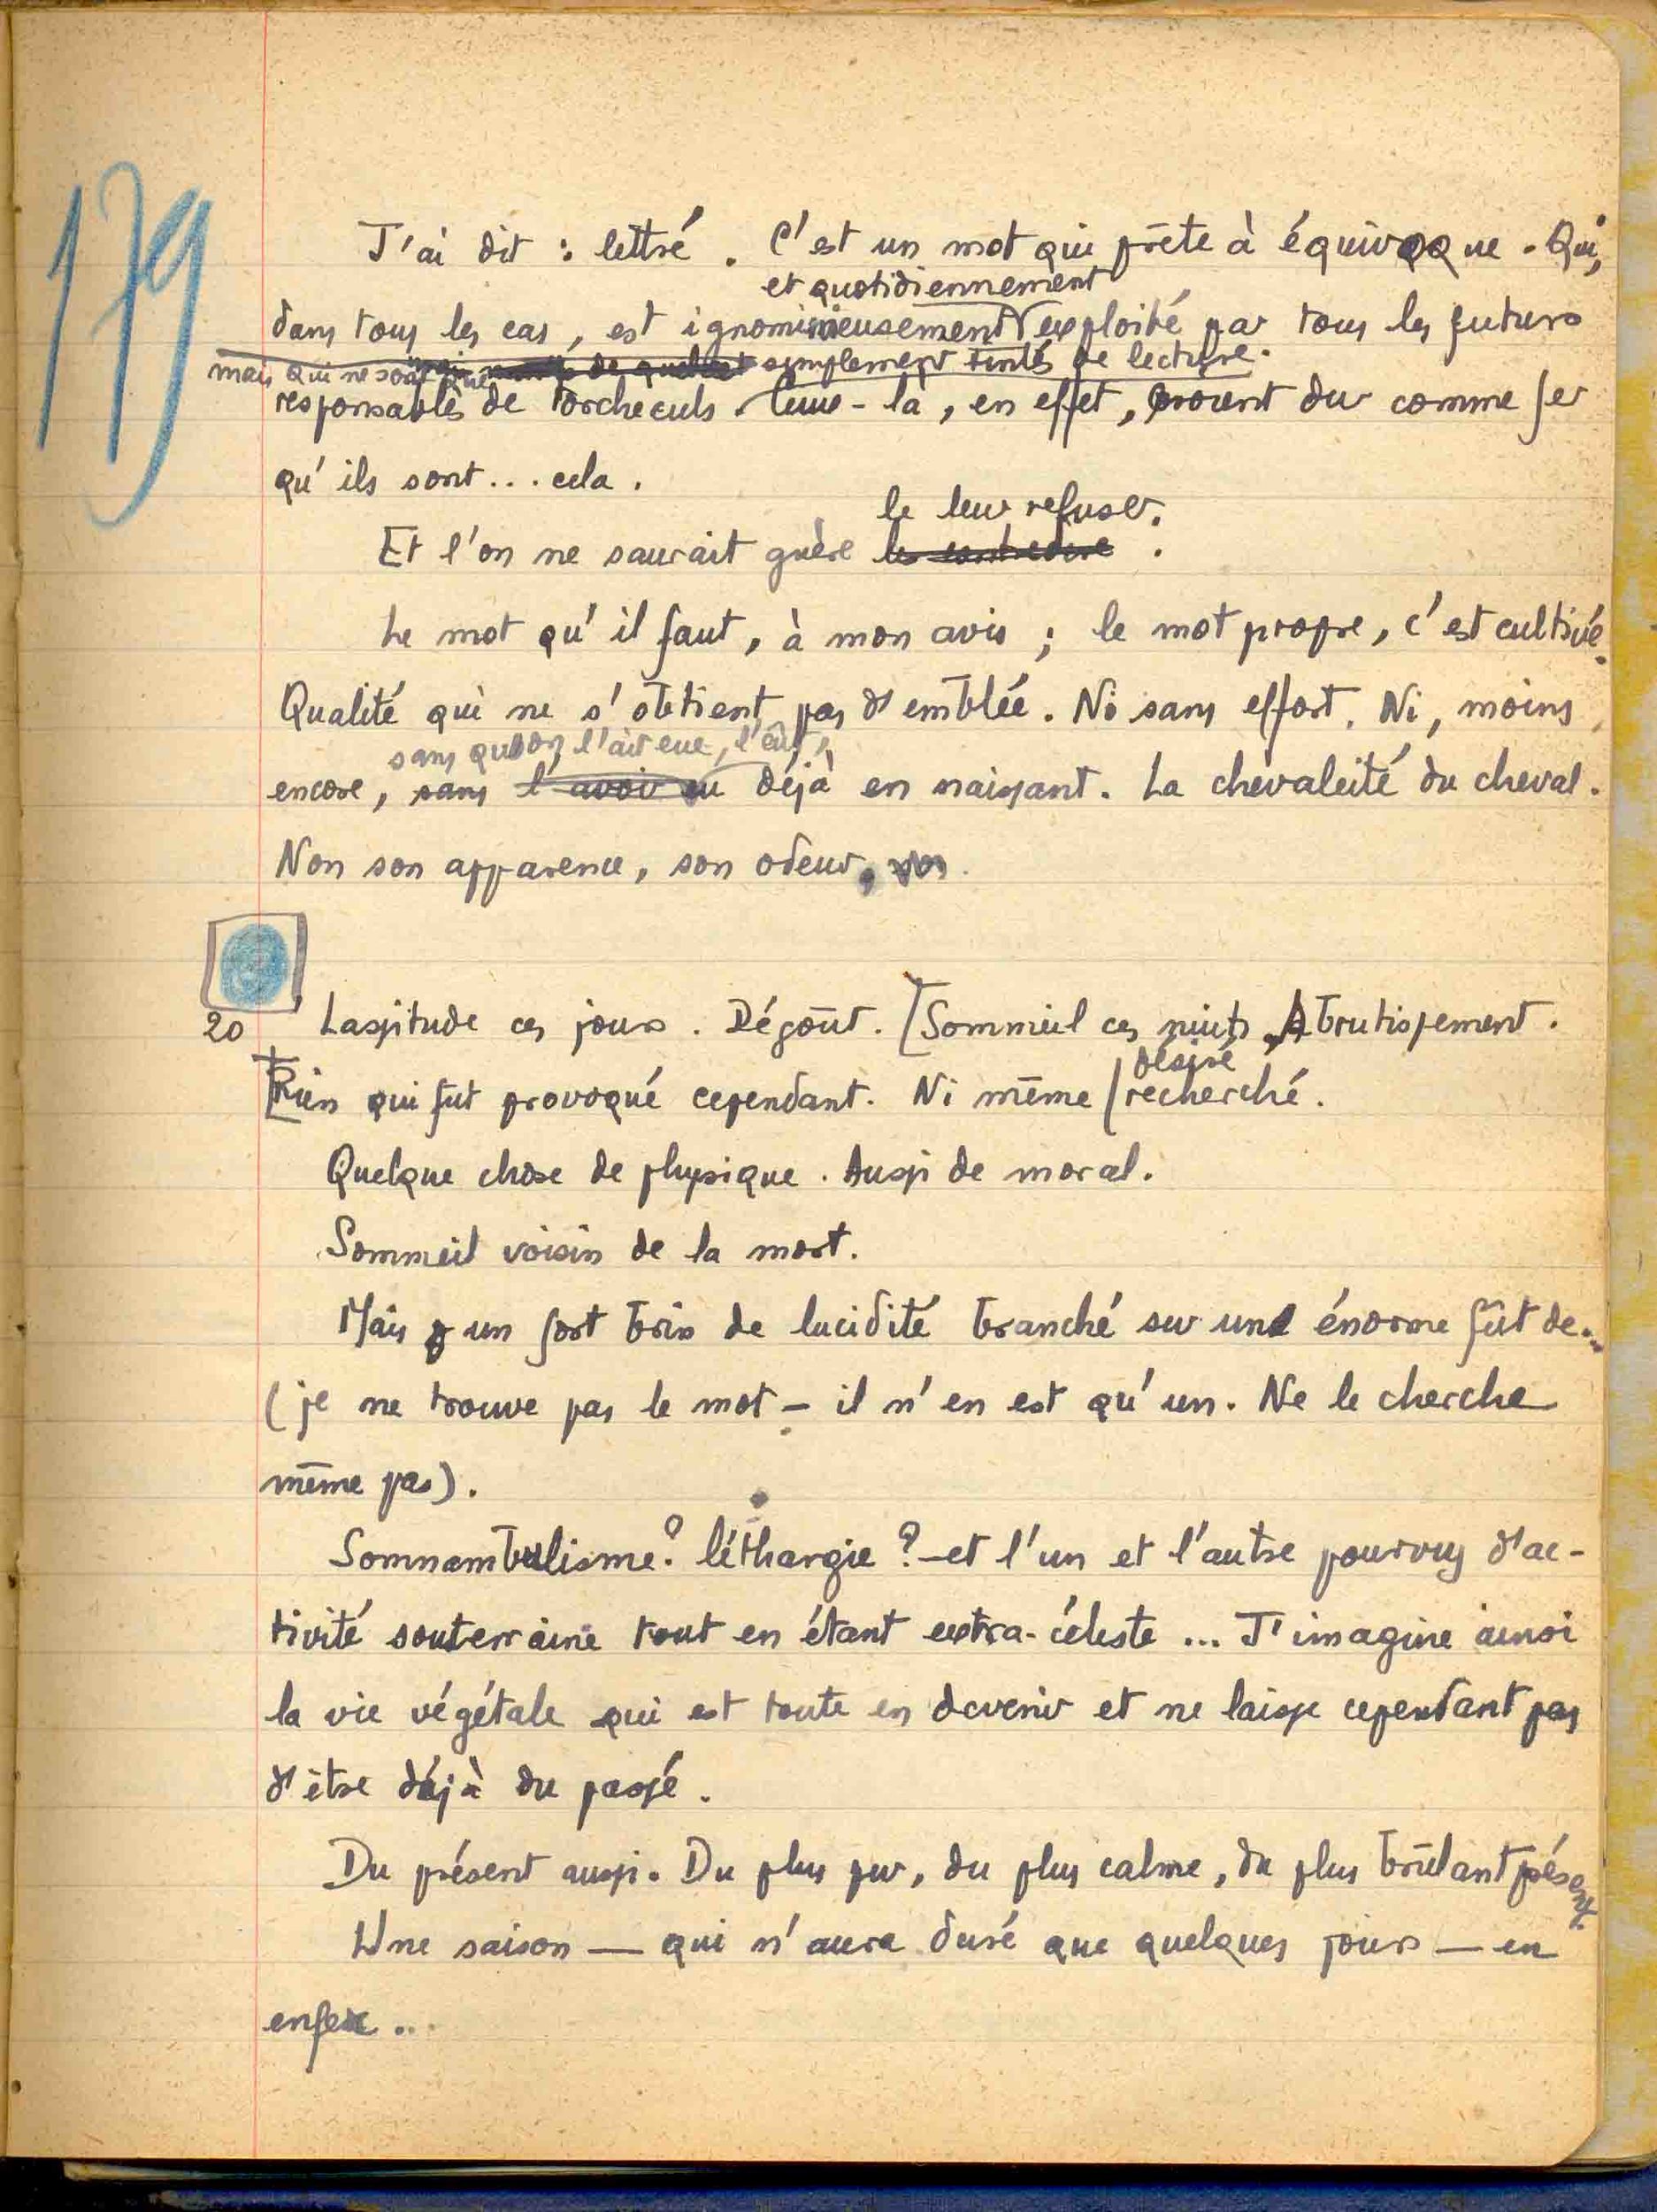 179
J'ai dit : lettré. C'est un mot qui prête à équivoque. Qui,
et quotidiennement
dans tous les cas, est ignominieusement exploité par tous les futurs
mais qui ne sont que simplement teintés de lecture.
responsables de torcheculs. Ceux-là, en effet, croient dur comme fer
qu'ils sont... cela.
le leur refuser.
Et l'on ne saurait guère les contredire.
Le mot qu'il faut, à mon avis ; le mot propre, c'est cultivé.
Qualité qui ne s'obtient pas d'emblée. Ni sans effort. Ni, moins
sans qu'on l'ait eue, l'eût,
encore, sans l'avoir eu déjà en naissant. La chevaléité du cheval.
Non son apparence, son odeur,
20 Lassitude ces jours. Dégoût. [Sommeil ces nuits. Abrutissement.
désiré
[Rien qui fut provoqué cependant. Ni même / recherché.
Quelque chose de physique. Aussi de moral.
Sommeil voisin de la mort.
Mais un fort brin de lucidité branché sur un énorme fût de...
(je ne trouve pas le mot – il n'en est qu'un. Ne le cherche
même pas).
Somnambulisme? léthargie? – et l'un et l'autre pourvus d'ac-
tivité souterraine tout en étant extra-céleste ... J'imagine ainsi
la vie végétale qui est toute en devenir et ne laisse cependant pas
d'être déjà du passé.
Du présent aussi. Du plus pur, du plus calme, du plus brûlant présent.
Une saison — qui n'aura duré que quelques jours — en
enfer...